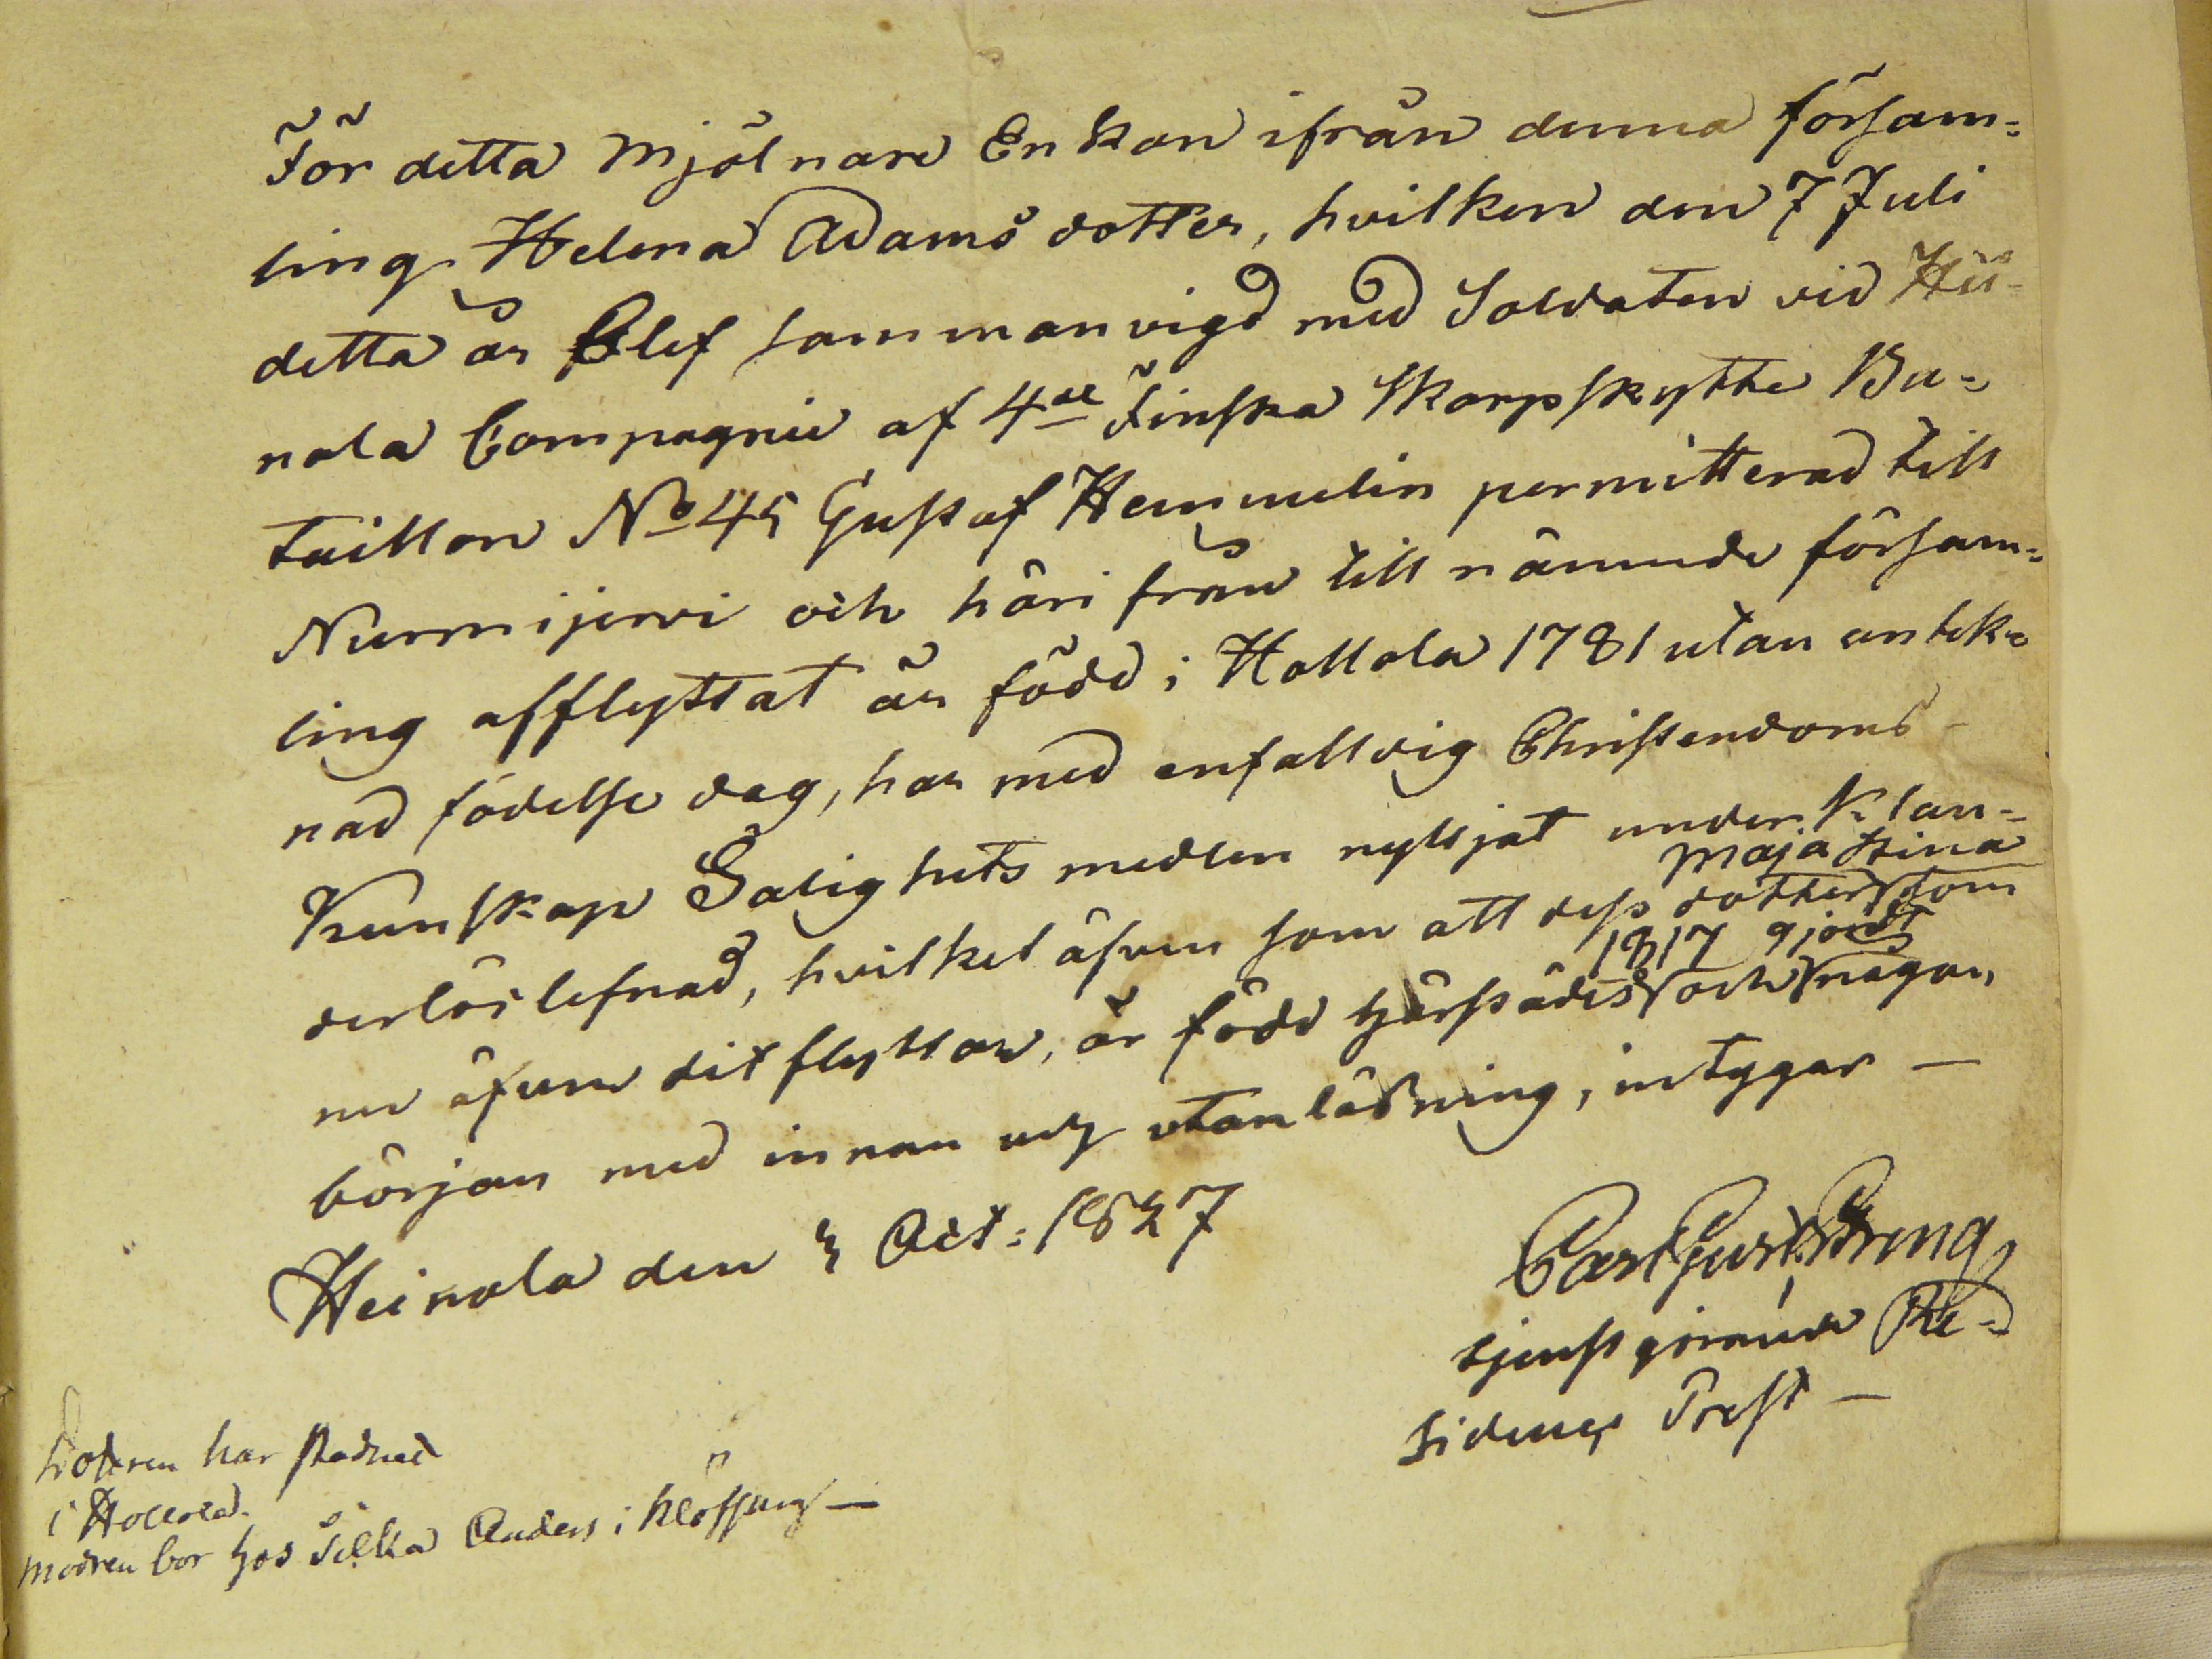 För detta Mjölnare Enkan ifrån denna försam=
ling Helena Adams dotter, hvilken den 7 Juli
detta år blef sammanvigd med Soldaten vid Hei-
nola Compagnie af 4de Finska Skarpskytte Ba=
taillon No 45 Gustaf Hemmelin permitterad till
Nurmijerwi och härifrån till nämnde försam=
ling afflyttat är född i Hollola 1781 utan antek=
nad födelse dag, har med enfalldig Christendoms-
Kunskap Salighets medlen nyttjat under Klan=
derlös lefnad, hvilket äfven som att dess dotter Maja Stina som
nu äfven ditflyttar, är född härstädes 1817 och gjordt någon
början med innan och utanläsning, intygar —
Heinola den 3 Oct: 1827
Carl Gust.
tjenstgörande Pre-
dikanten Prest —
Dotren har stadnat
i Hollola.
Modren bor hos Anders i Klöfskog —